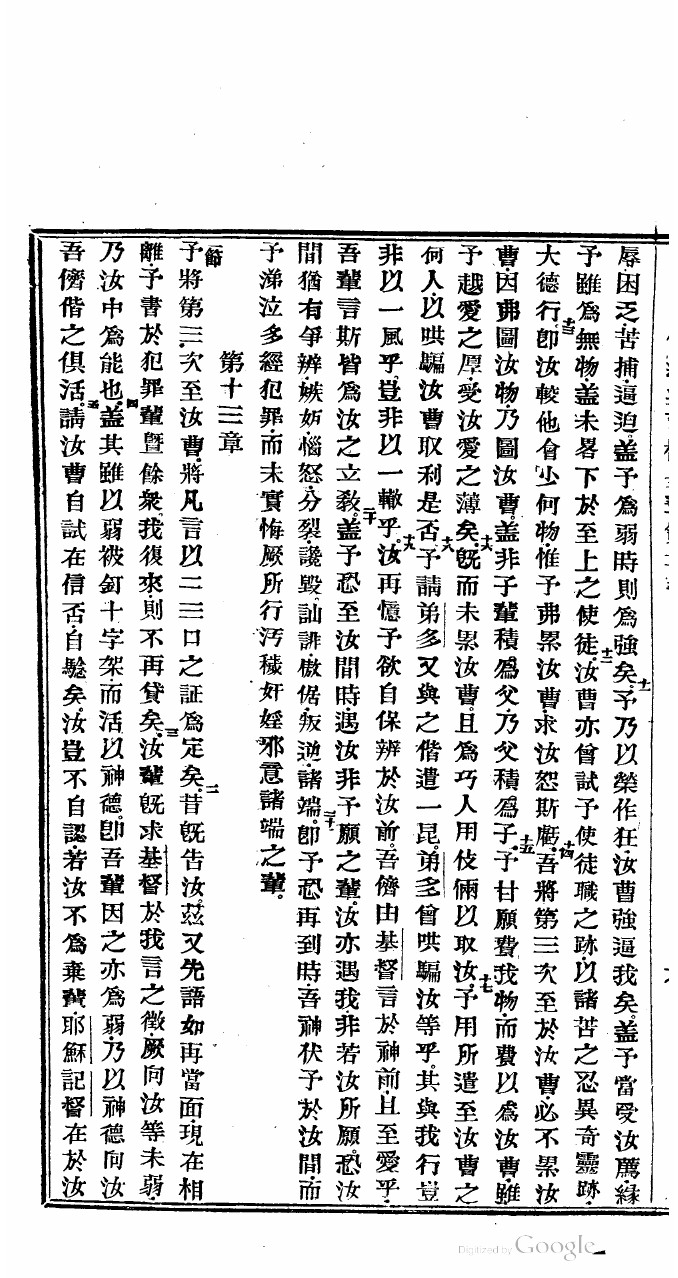 辱困乏苦捕逼迫蓋予為弱時則為強矣十一予乃以榮作狂汝曹強逼我矣蓋予當受汝薦緣
予雖為無物蓋未畧下於至上之使徒十二汝曹亦曾試予使徒職之跡以諸苦之忍異奇靈跡
大德行十三即汝較他會少何物惟予弗累汝曹求汝恕斯虧十四吾將第三次至於汝曹必不累汝
曹因弗圖汝物乃圖汝曹蓋非子輩積為父乃父積為子十五予甘願費我物而費以為汝曹雖
予越愛之厚受汝愛之薄矣十六既而未累汝曹且為巧人用伎倆以取汝十七予用所遣至汝曹之
何人以哄騙汝曹取利是否十八予請弟多又與之偕遣一昆弟多曾哄騙汝等乎其與我行豈
非以一風乎豈非以一轍乎十九汝再憶予欲自保辨於汝前吾儕由基督言於神前且至愛乎
吾輩言斯皆為汝之立教二十蓋予恐至汝間時遇汝非予願之輩汝亦遇我非若汝所願恐汝
間猶有爭辨嫉妬惱怒分裂讒毀訕誹傲倨叛逆諸端二十一即予恐再到時吾神伏予於汝間而
予涕泣多經犯罪而未實悔厥所行污穢奸婬邪意諸端之輩。
第十三章
一節予將第三次至汝曹將凡言以二三口之証為定矣二昔既告汝茲又先語如再當面現在相
離予書於犯罪輩曁餘衆我復來則不再貸矣三汝輩既求基督於我言之徵厥向汝等未弱
乃汝中為能也四蓋其雖以弱被釘十字架而活以神德即吾輩因之亦為弱乃以神德向汝
吾儕偕之俱活五請汝曹自試在信否自驗矣汝豈不自認若汝不為棄輩耶穌記督在於汝
Digitized by Google